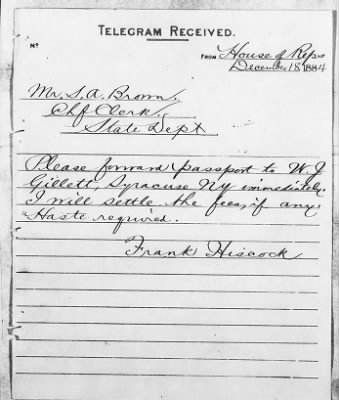 TELEGRAM RECEIVED.
No
FROM House of Reps
December 18 1884
Mr. S. A. Brown.
Chf Clerk.
State Dept
Please forward passport to W. J.
Gillett, Syracuse NY immediately.
I will settle the fees, if any.
Haste required.
Frank Hiscock